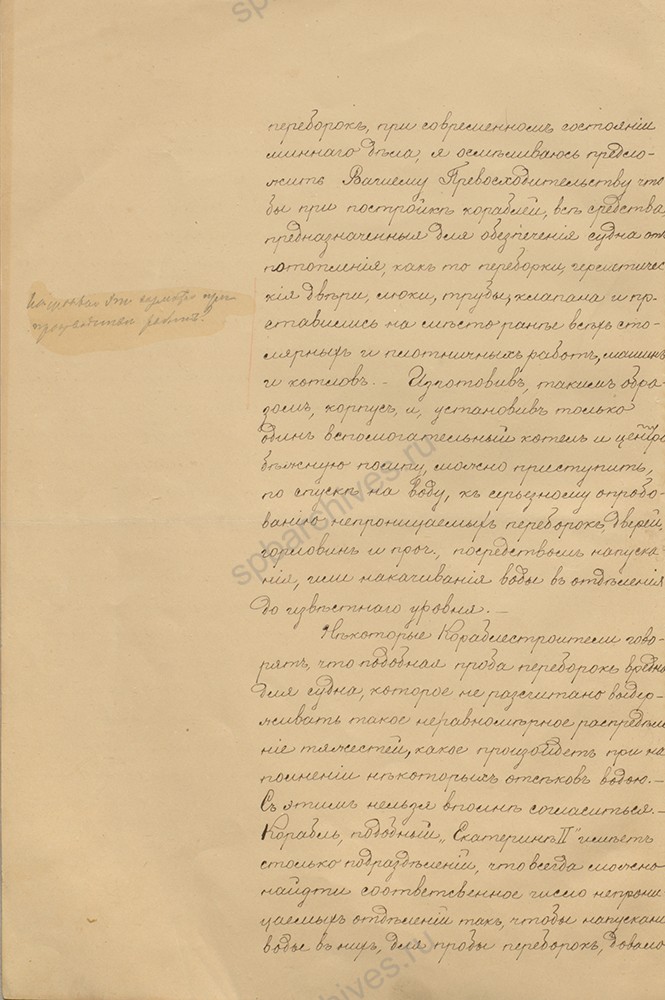 переборокъ, при современномъ состояніи
миннаго дѣла, я осмѣливаюсь предло-
жить Вашему Превосходительству что
бы при постройкѣ кораблей, всѣ средства,
предназначенныя для обезпеченія судна отъ
потопленія, какъ то переборки, герметичес
кія двѣри, люки, трубы, клапана и пр.
ставились на мѣсто ранѣе всѣхъ сто-
лярныхъ и плотничныхъ работъ, машинъ
и котловъ. - Изготовивъ, такимъ обра-
зомъ, корпусъ, и, установивъ только
одинъ вспомогательный котелъ и центро
бѣжную помпу, можно приступить,
по спускѣ на воду, къ серьезному опробо-
ванію непроницаемыхъ переборокъ, дверей,
горловинъ и проч., посредствомъ напуска
нія, или накачиванія воды въ отдѣленія
до извѣстнаго уровня. -
Нѣкоторые Кораблестроители гово-
рятъ, что подобная проба переборокъ вредна
для судна, которое не разсчитано выдер-
живать такое неравномѣрное распредѣле
ніе тяжестей, какое произойдетъ при на
полненіи нѣкоторыхъ отсѣковъ водою. -
Съ этимъ нельзя вполнѣ согласиться. -
Корабль, подобный „Екатеринѣ II" имѣетъ
столько подраздѣленій, что всегда можно
найдти соотвѣтсвенное число непрони
цаемыхъ отдѣленій такъ, чтобы напускані
воды въ нихъ, для пробы переборокъ, давало
при
работъ?
spbarchives.ru